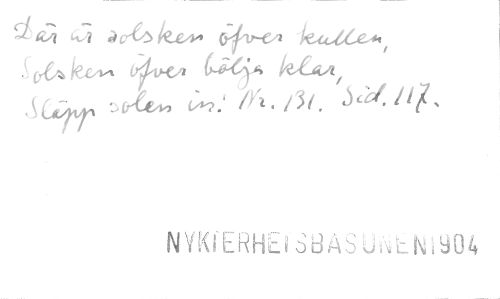 Där är solsken öfver kullen,
Solsken öfver bölja klar,
Släpp solen in! Nr. 131. Sid. 117.
NYKTERHETSBASUNEN 1904